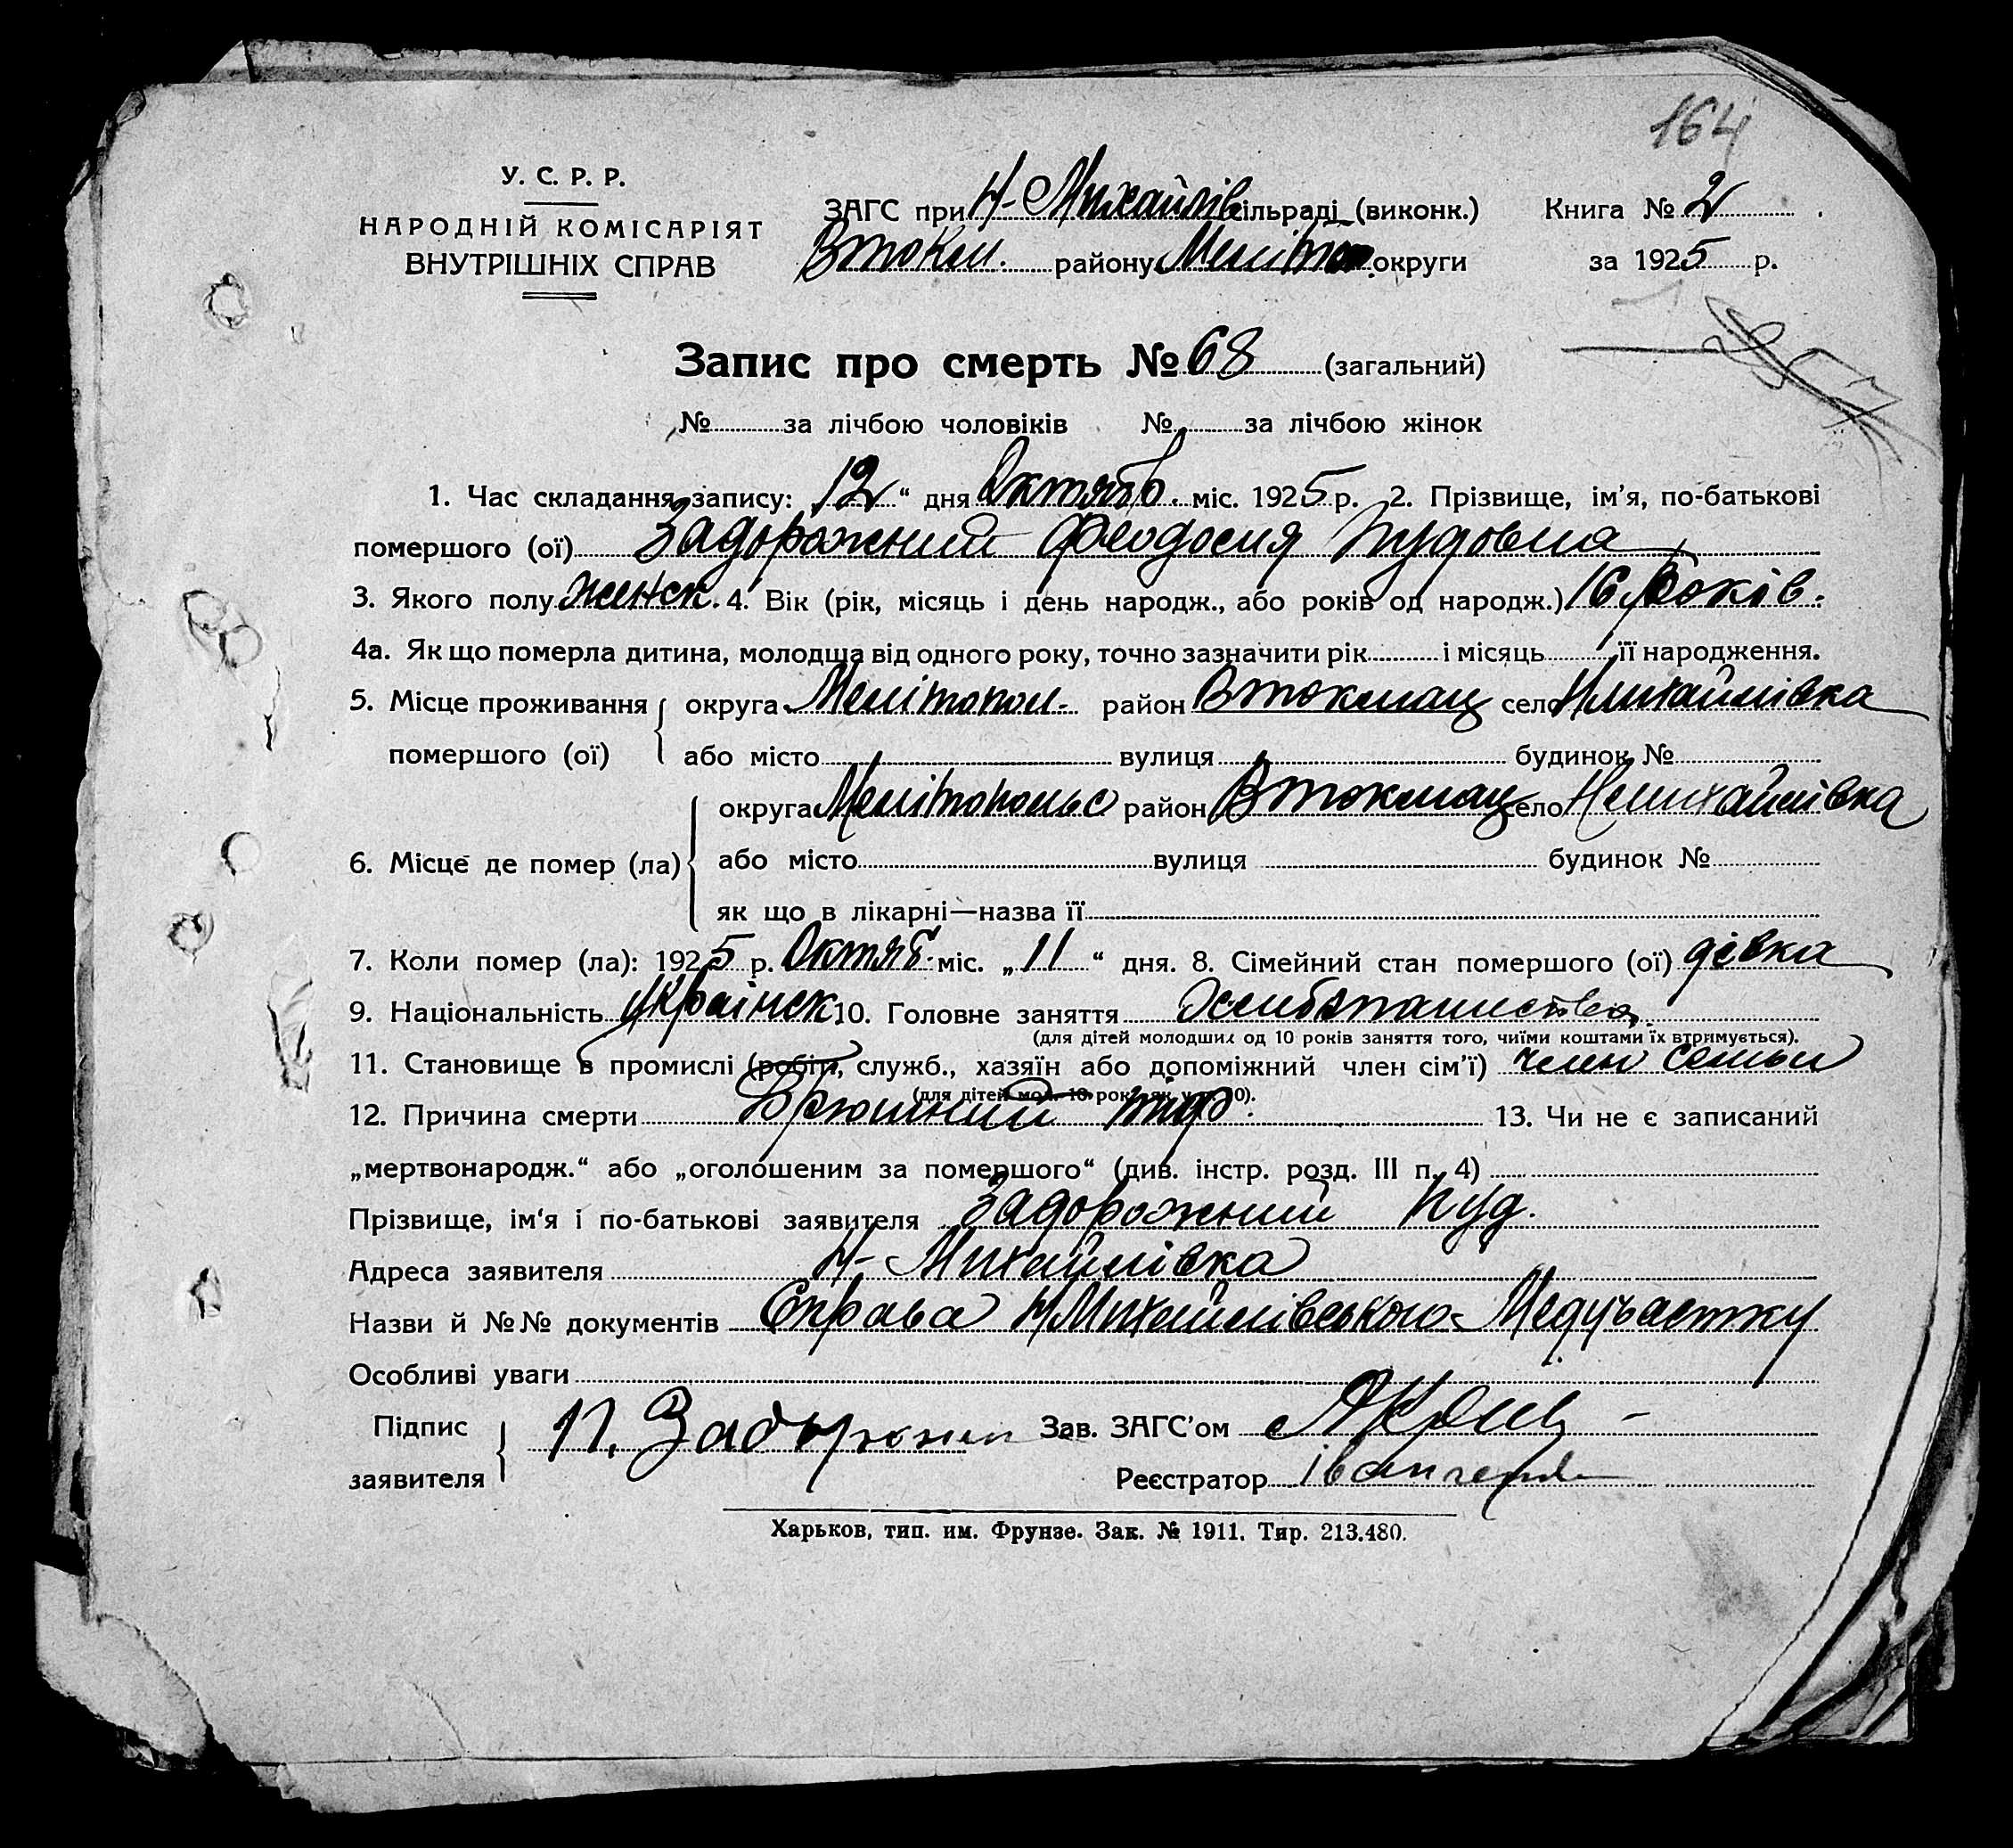 164
У. С. Р. Р.
НАРОДНІЙ КОМІСАРІЯТ
ВНУТРІШНІХ СПРАВ
ЗАГС при Н-Михайлів сільраді (виконк.) Книга № 2
Втокм. району Меліто округи за 1925 р.
Запис про смерть № 68 (загальний)
№ за лічбою чоловіків № за лічбою жінок
1. Час складання запису: 12 “ дня Октяб. міс. 1925 р. 2. Прізвище, ім’я, по-батькові
помершого (ої) Задорожний Феодосия Пудовна
3. Якого полу женск. 4. Вік (рік, місяць і день народж., або років од народж.) 16 Років.
4а. Як що померла дитина, молодща від одного року, точно зазначити рік і місяць її народження.
5. Місце проживання округа Мелітопол. район Втокмац село Нмихайлівка
помершого (ої) або місто вулиця будинок №
округа Мелітопольс район Втокмац село Нмихайлівка
6. Місце де помер (ла) або місто вулиця будинок №
як що в лікарні—назва її
7. Коли помер (ла): 1925 р. Октяб. міс. „ 11 “ дня. 8. Сімейний стан помершого (ої) дівка
9. Національність Українск. 10. Головне заняття Хлибапашество
(для дітей молодших од 10 років заняття того, чиїми коштами їх втримується).
11. Становище в промислі (робітн, служб., хазяїн або допоміжний член сім’ї) член семьи
(для дітей мол. 10 рок. як у п. 10).
12. Причина смерти Брюшний тиф. 13. Чи не є записаний
„мертвонародж.“ або „оголошеним за помершого“ (див. інстр. розд. III п. 4)
Прізвище, ім‘я і по-батькові заявителя Задорожний Пуд.
Адреса заявителя Н-Михайлівка
Назви й №№ документів Справа НМихайлівського Медучастку
Особливі уваги
Підпис заявителя П. Задорожни Зав. ЗАГС’ом
Реєстратор
Харьков, тип. им. Фрунзе. Зак. № 1911. Тир. 213.480.